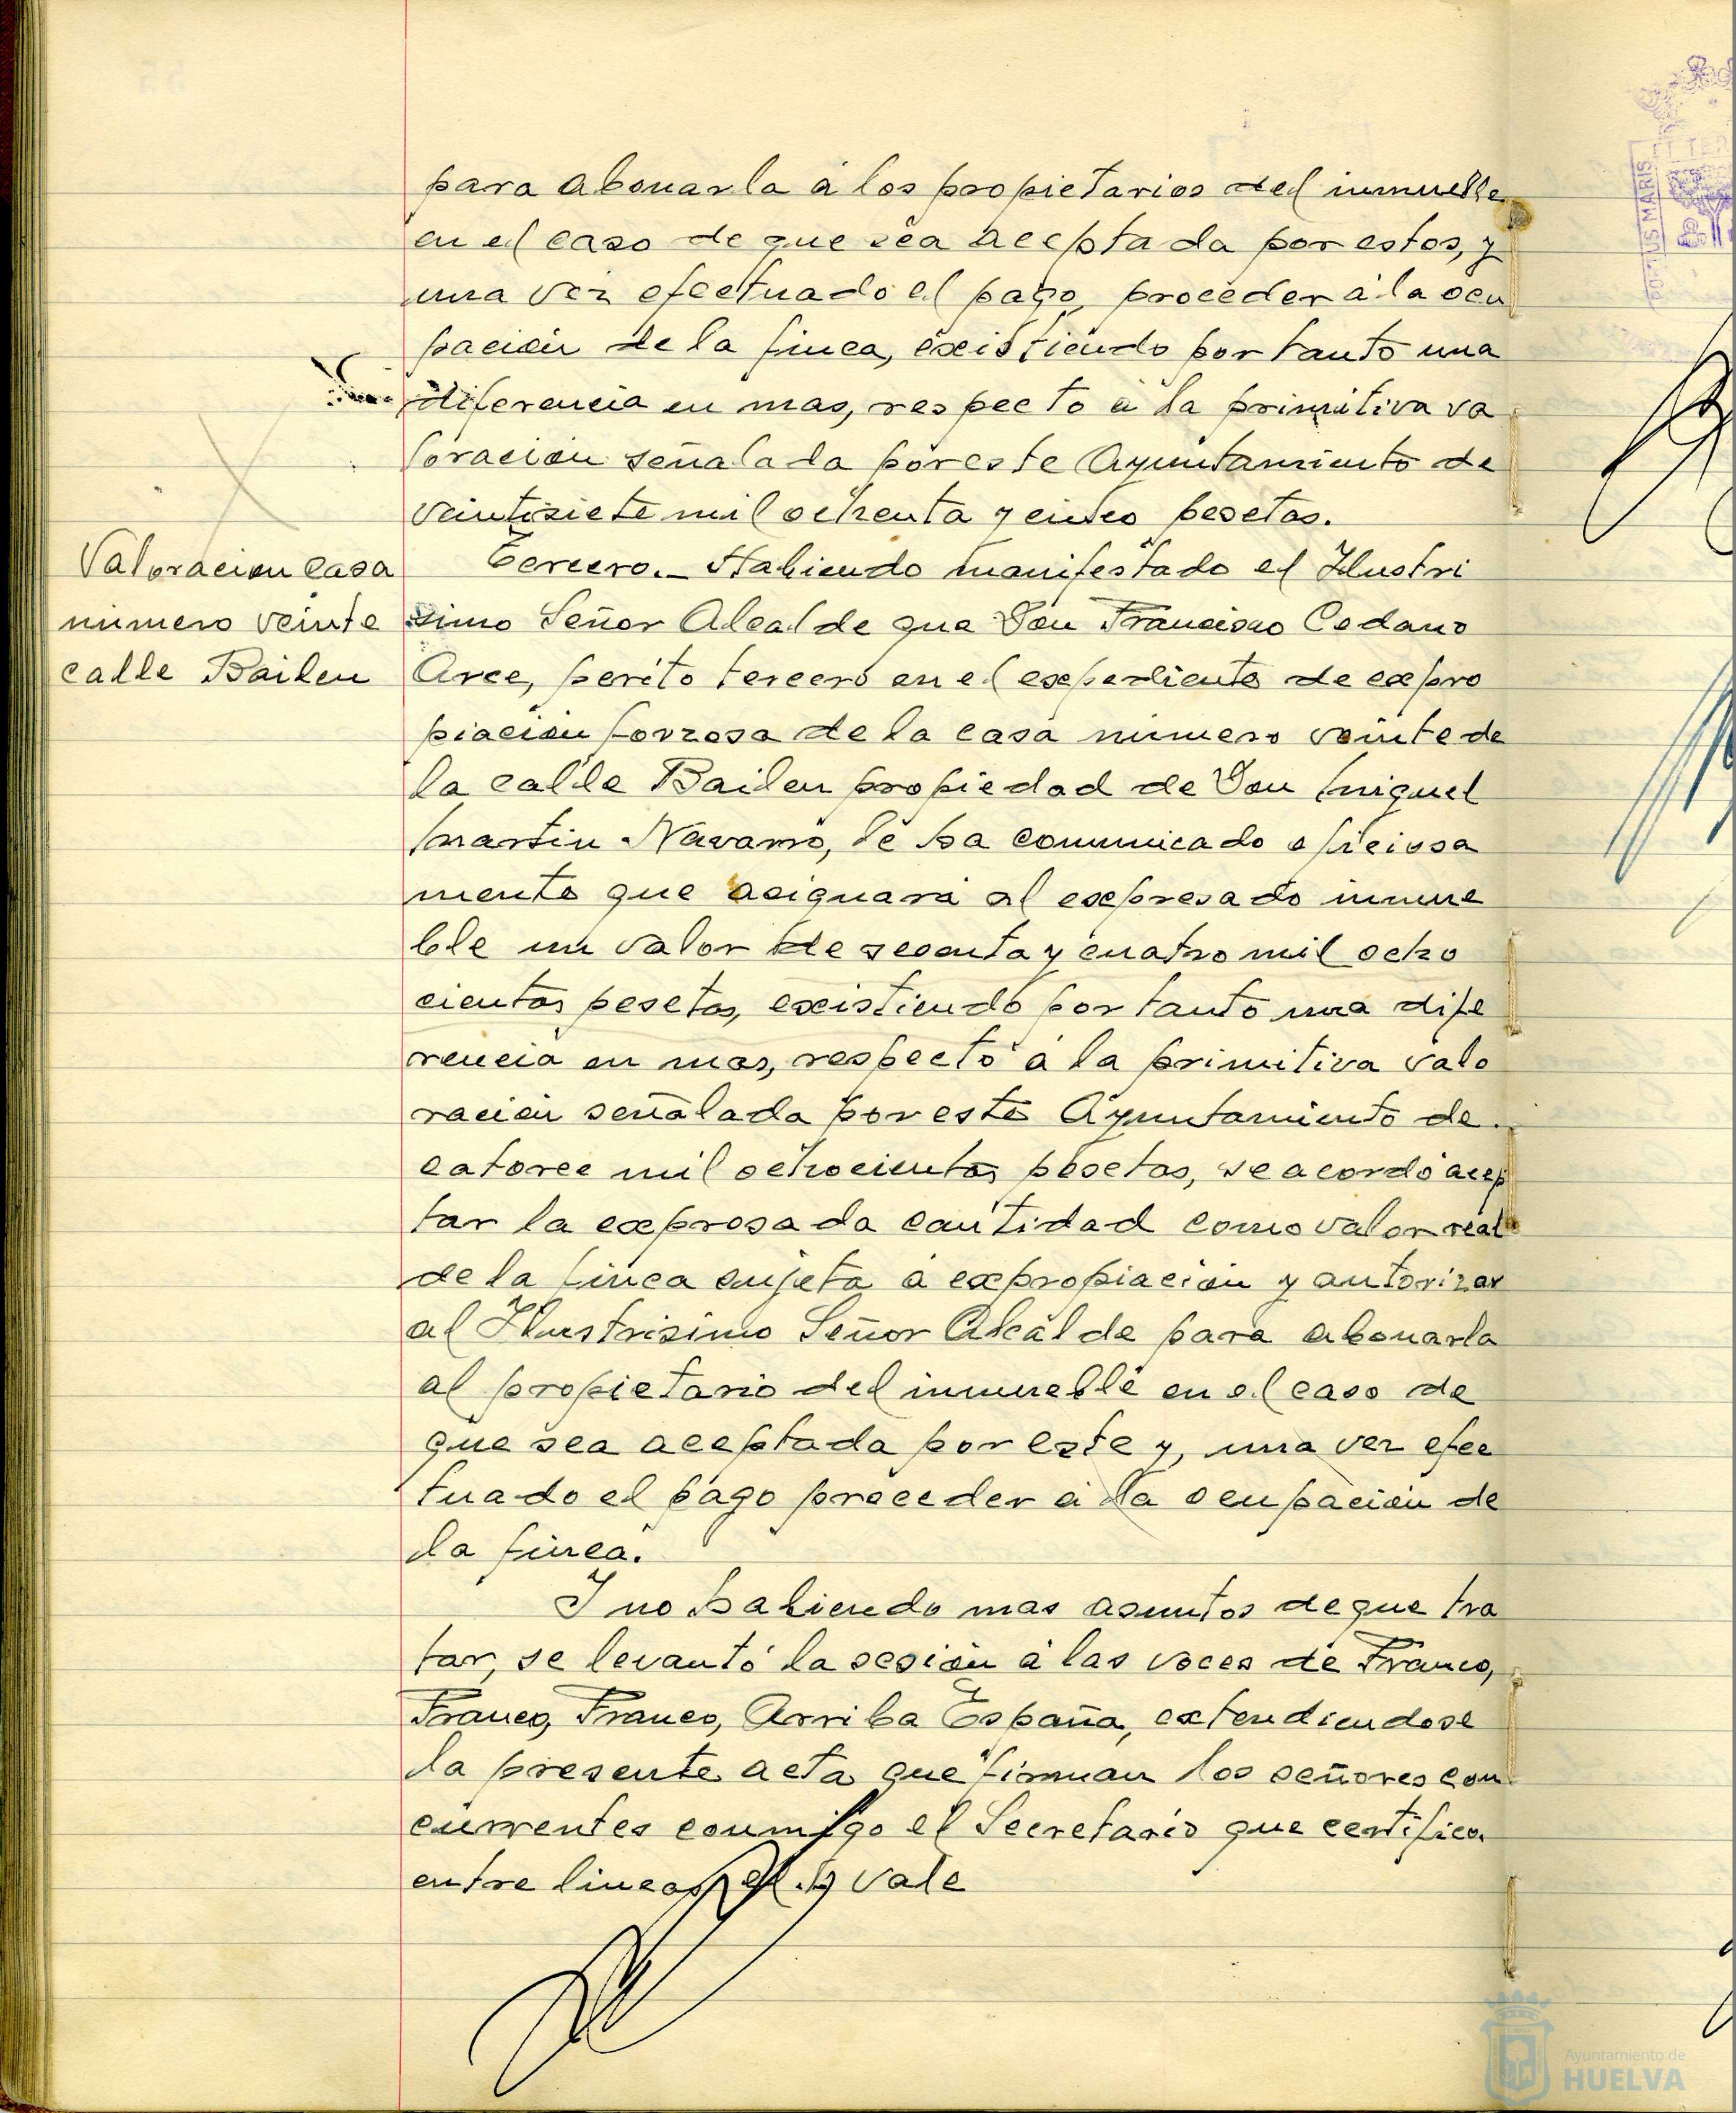 para abonarla à los propietarios del inmueble
en el caso de que sea aceptada por estos, y
una vez efectuado el pago, proceder à la ocu
pación de la finca, existiendo por tanto una
diferencia en mas, respecto à la primitiva va
loracion señalada por este Ayuntamiento de
veintisiete mil ochenta y cinco pesetas.
Valoracion casa
numero veinte
calle Bailen
Tercero.- Habiendo manifestado el Ilustri
simo Señor Alcalde que Don Francisco Cedano
Arce, perito tercero en el expediente de expro
piacion forzosa de la casa numero veinte de
la calle Bailen propiedad de Don Miguel
Martin Navarro, le ha comunicado oficiosa
mente que asignara al expresado inmue
ble un valor de sesenta y cuatro mil ocho
cientas pesetas, existiendo por tanto una dife
rencia en mas, respecto à la primitiva valo
racion señalada por este Ayuntamiento de
catorce mil ochocientas pesetas, se acordó acep
tar la expresada cantidad como valor real
de la finca sujeta à expropiacion y autorizar
al Ilustrisimo Señor Alcalde para abonarla
al propietario del inmueble en el caso de
que sea aceptada por este y, una vez efec
tuado el pago proceder à la ocupación de
la finca.
I no habiendo mas asuntos de que tra
tar, se levantó la sesión à las voces de Franco,
Franco, Franco, Arriba España, extendiendose
la presente acta que firman los señores con
currentes conmigo el Secretario que certifico.
entre lineas vale
PORTUS MARIS
Ayuntamiento de
HUELVA